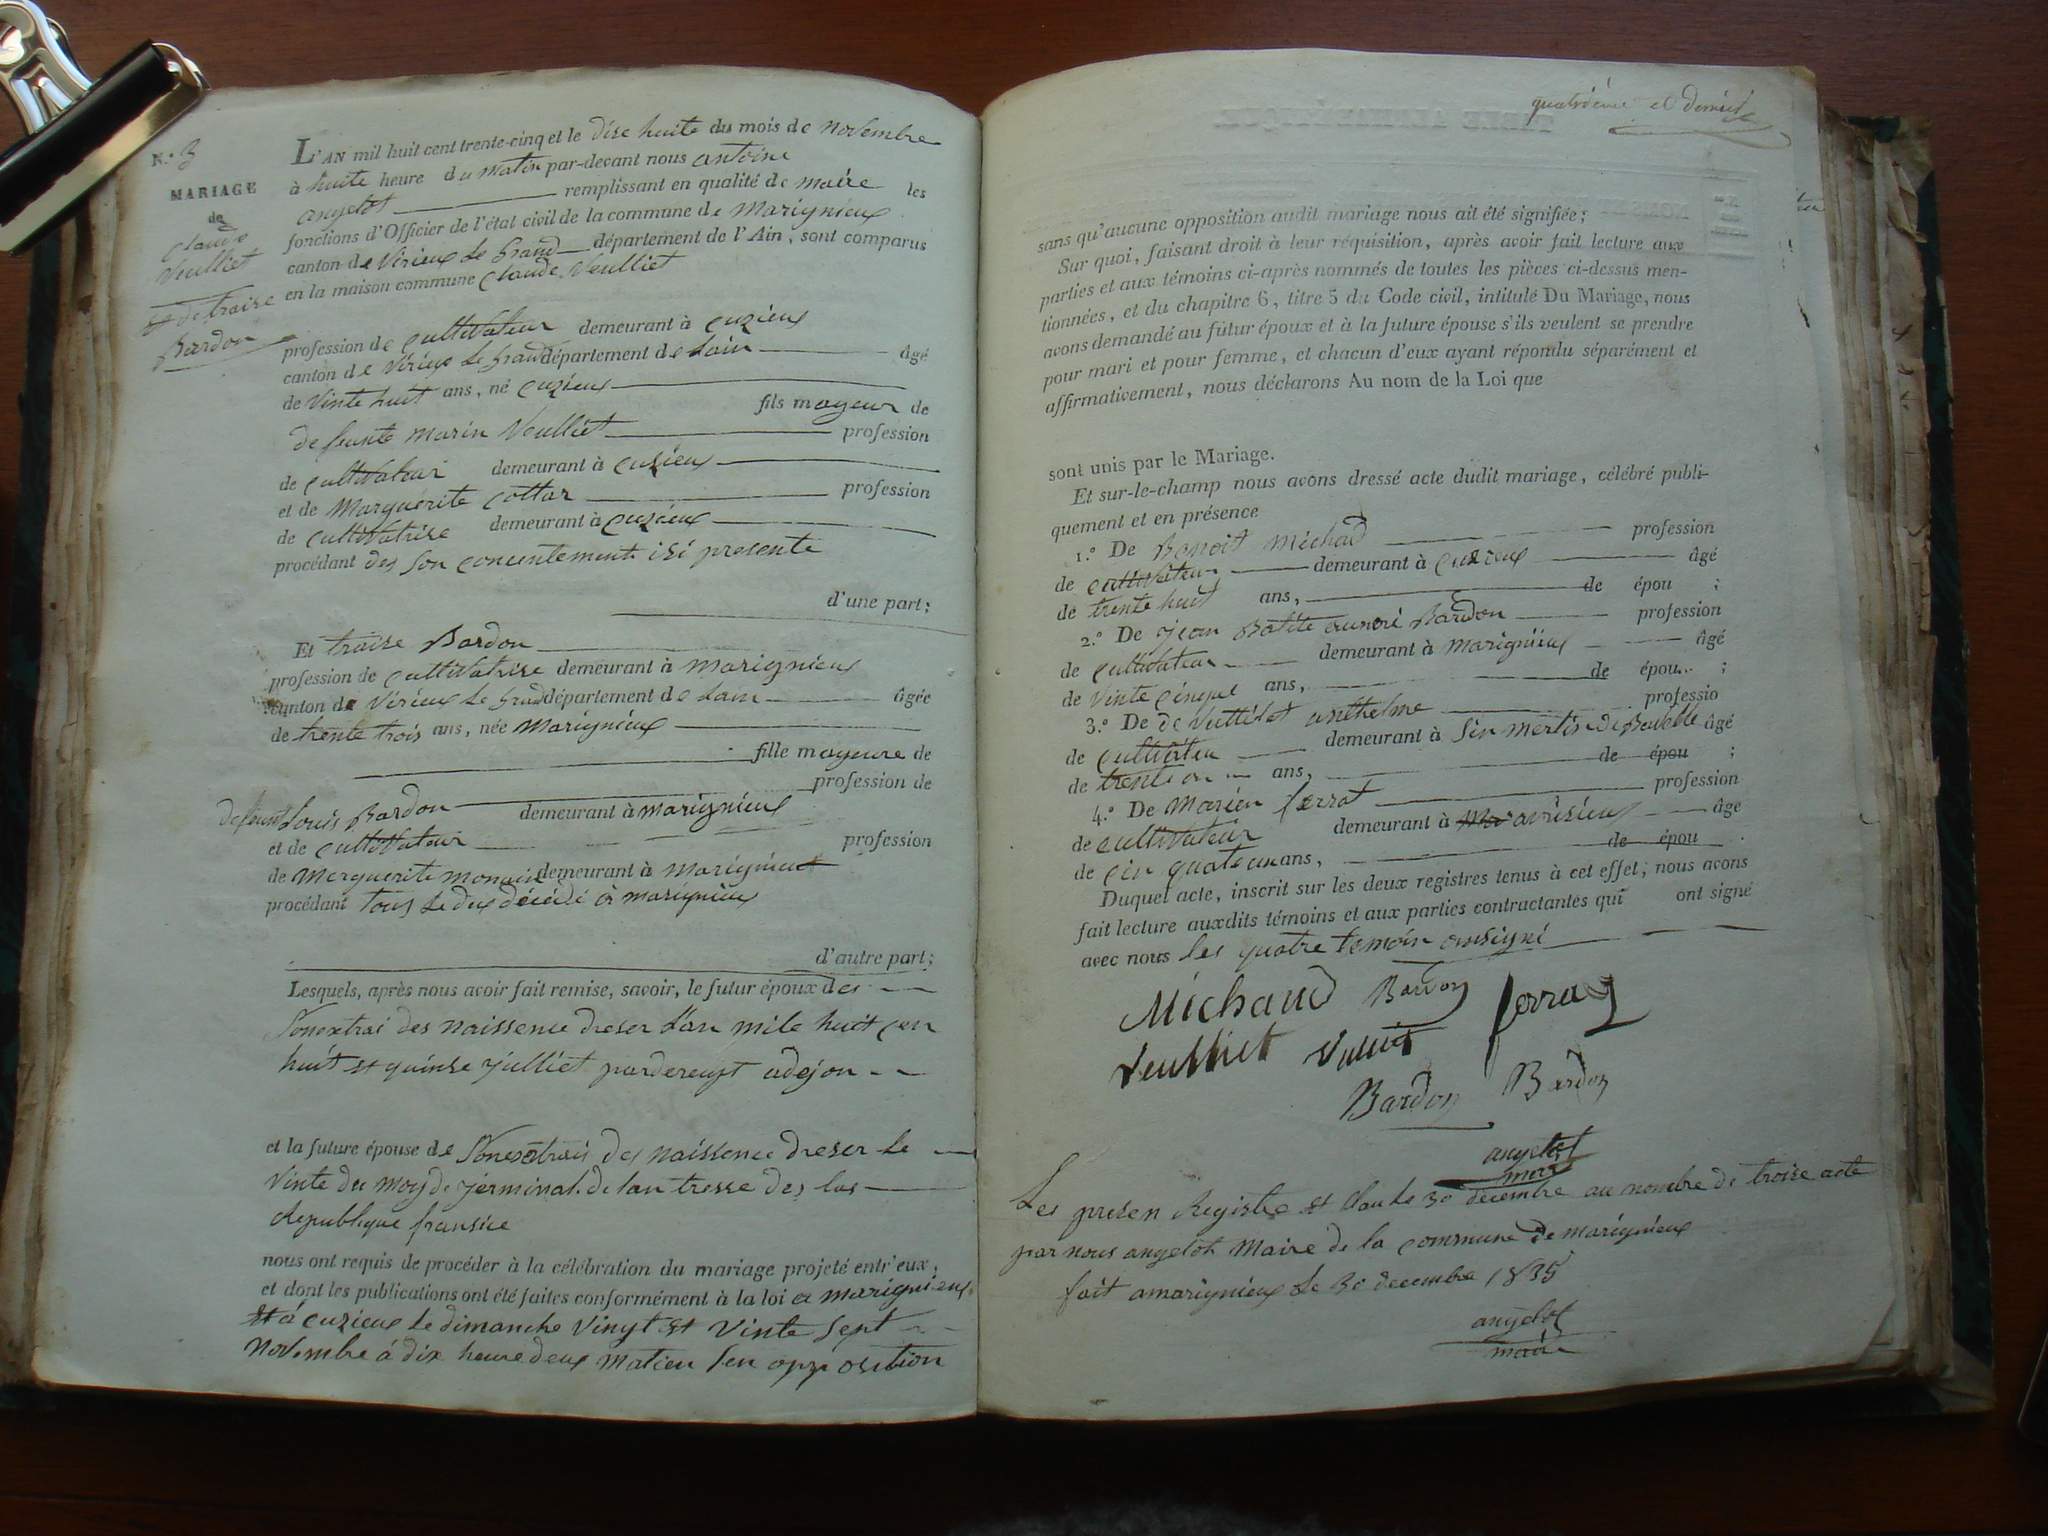 N.° 3
MARIAGE
de
claude
Veulliet
et de traise
Bardon
L'AN mil huit cent trente-cinq et le dise huite du mois de novembre
à huite heure du matin par-devant nous antoine
angelot remplissant en qualité de maire les
fonctions d'Officier de l'état civil de la commune de Marignieux
canton de Virieux le grand département de l'Ain, sont comparus
en la maison commune claude Veulliet
profession de cultivateur demeurant à cuzieux
canton de Virieux le grand département de Lain âgé
de Vinte huit ans, né cuzieux
fils mayeur de
defeunte marin Veulliet profession
de cultivateur demeurant à cuzieux
et de Marguerite cottar profession
de cultivatrise demeurant à cuzieux
procédant des son concentement isi presente
d'une part;
Et traise Bardon
profession de cultivatrise demeurant à marignieux
canton de Virieux le grand département de Lain âgée
de trente trois ans, née Marignieux
fille mayeure de
profession de
defeunt Louis Bardon demeurant à marignieux
et de cultivateur profession
de Merguerite demeurant à marignieux
procédant tous le dux décédé à marignieux
d'autre part;
Lesquels, après nous avoir fait remise, savoir, le futur époux des
Sonextrai des naissence dreser L'an mile huit cen
huit et quinse julliet adejon
et la future épouse de Sonextrais des naissence dreser le
Vinte du moy de jerminal de lan tresse des las
republique fransise
nous ont requis de procéder à la célébration du mariage projeté entr'eux,
et dont les publications ont été faites conformément à la loi a marignieux
et à cuzieux le dimanche Vingt et Vinte Sept
Novembre à dix heure deux matien Sen opposition
quatrième et dernier
sans qu'aucune opposition audit mariage nous ait été signifiée;
Sur quoi, faisant droit à leur réquisition, après avoir fait lecture aux
parties et aux témoins ci-après nommés de toutes les pièces ci-dessus men-
tionnées, et du chapitre 6, titre 5 du Code civil, intitulé Du Mariage, nous
avons demandé au futur époux et à la future épouse s'ils veulent se prendre
pour mari et pour femme, et chacun d'eux ayant répondu séparément et
affirmativement, nous déclarons Au nom de la Loi que
sont unis par le Mariage.
Et sur-le-champ nous avons dressé acte dudit mariage, célébré publi-
quement et en présence
1.° De Benoit Michad profession
de cultivateur demeurant à cuzieux âgé
de trente huit ans, de épou ;
2.° De jean Batite Bardon profession
de cultivateur demeurant à marignieux âgé
de Vinte cinque ans, de épou ;
3.° De de anthelme professio
de cultivateu demeurant à Sin mertin de âgé
de trente ans, de épou ;
4.° De Marien ferrat profession
de cultivateur demeurant à avrisieux âgé
de ans, de épou
Duquel acte, inscrit sur les deux registres tenus à cet effet; nous avons
fait lecture auxdits témoins et aux parties contractantes qui ont signé
avec nous les quatre temoin onsigni
Michaud Bardon ferra
Veulliet Vulliet
Bardon Bardon
angelot
maire
Les presen Registre et clau le 30 decembre au nombre de troise acte
par nous angelot Maire de la commune de marignieux
fait a marignieux le 30 decembre 1835
angelot
maire